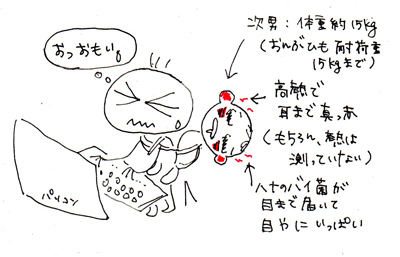 おっおもい。
次男：体重約15kg
(おんぶひも耐荷重
15kgまで)
高熱で
耳まで真っ赤
(もちろん、熱は
測っていない)
ハナのバイ菌が
目まで届いて
目やにいっぱい
パソコン